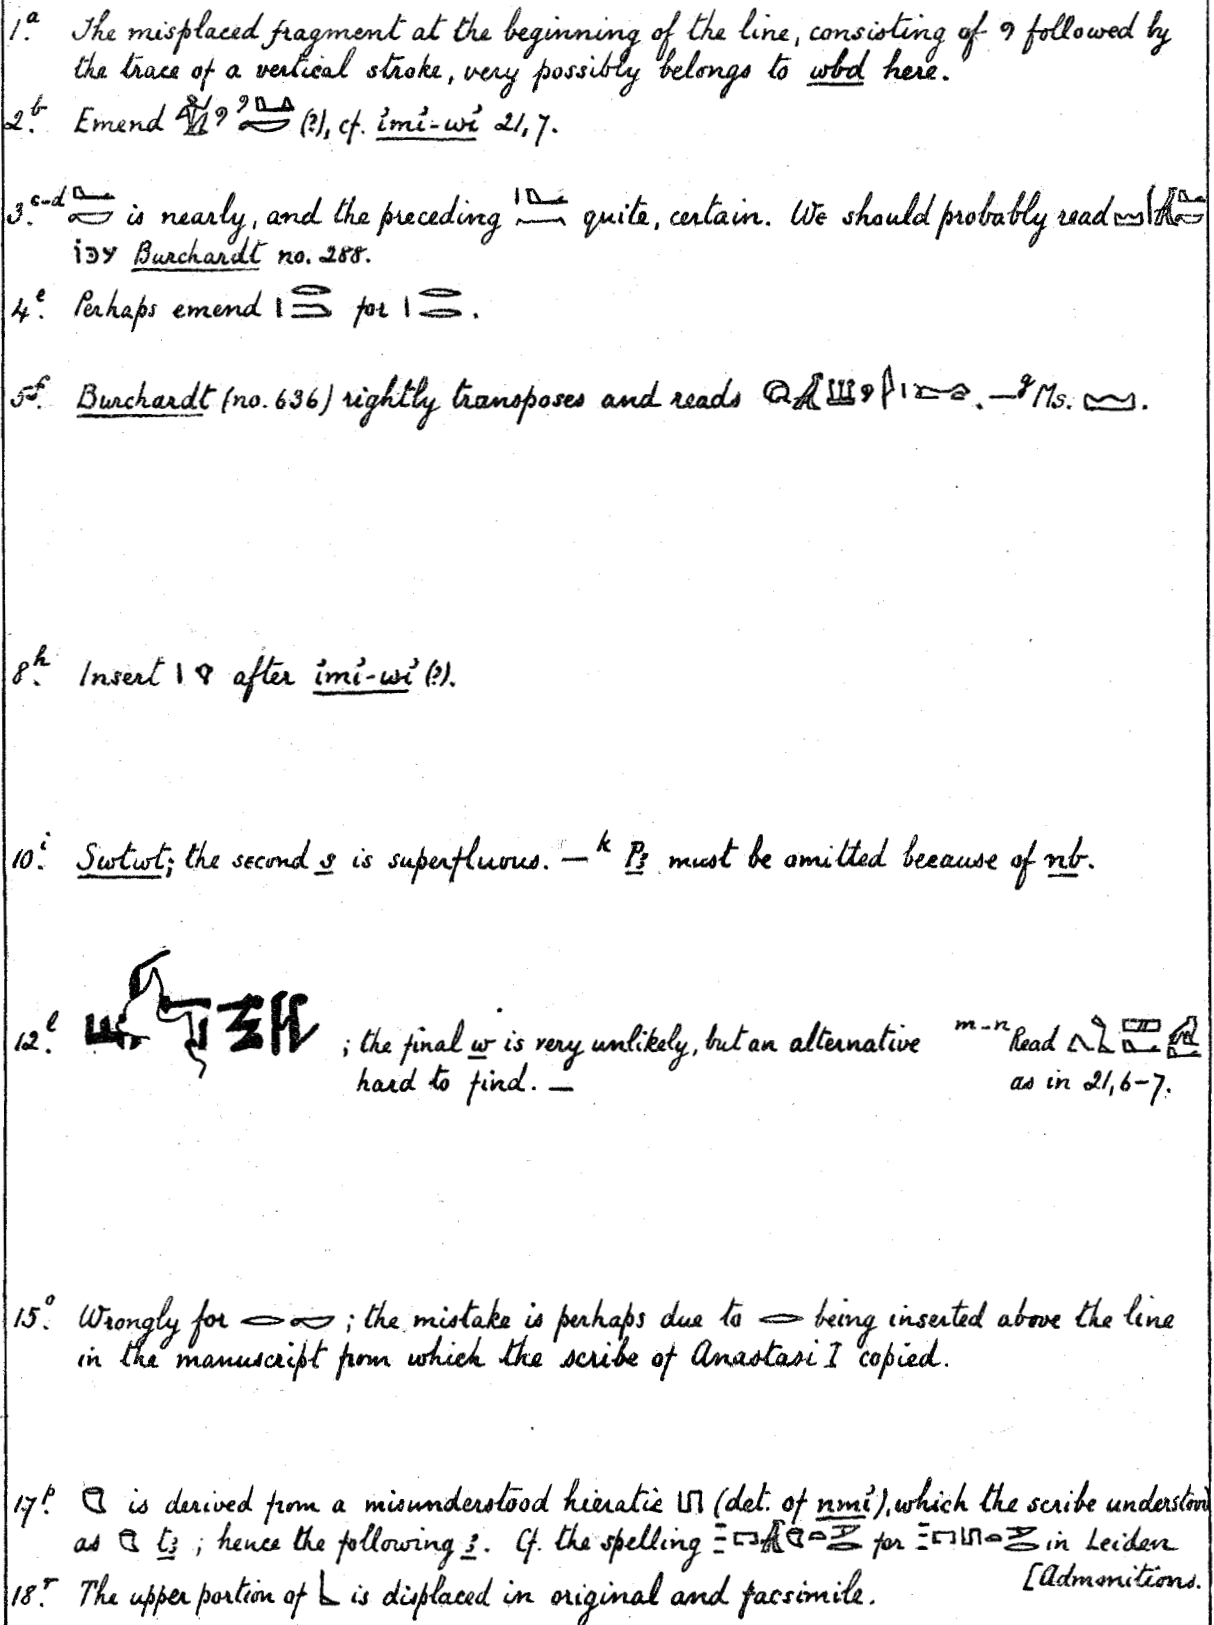 1.ᵃ The misplaced fragment at the beginning of the line, consisting of 𓏲 followed by
the trace of a vertical stroke, very possibly belongs to wbd here.
2.ᵇ Emend (?), cf. ỉmỉ-wỉ 21, 7.
3.ᶜ⁻ᵈ is nearly, and the preceding quite, certain. We should probably read
Burchardt no. 288.
4.ᵉ Perhaps emend for
5.ᶠ Burchardt (no. 636) rightly transposes and reads . —ᵍ Ms. 𓈉.
8.ʰ Insert after ỉmỉ-wỉ (?).
10.ⁱ Swtwt; the second s is superfluous. — ᵏ Pꜣ must be omitted because of nb.
12.ˡ ; the final w is very unlikely, but an alternative
hard to find. —
ᵐ⁻ⁿ Read
as in 21, 6-7.
15.ᵒ Wrongly for 𓂋𓎟; the mistake is perhaps due to 𓂋 being inserted above the line
in the manuscript from which the scribe of Anastasi I copied.
17.ᵖ is derived from a misunderstood hieratic (det. of nmỉ), which the scribe understood
as tꜣ; hence the following ꜣ. Cf. the spelling for in Leiden
[Admonitions.
18.ʳ The upper portion of is displaced in original and facsimile.